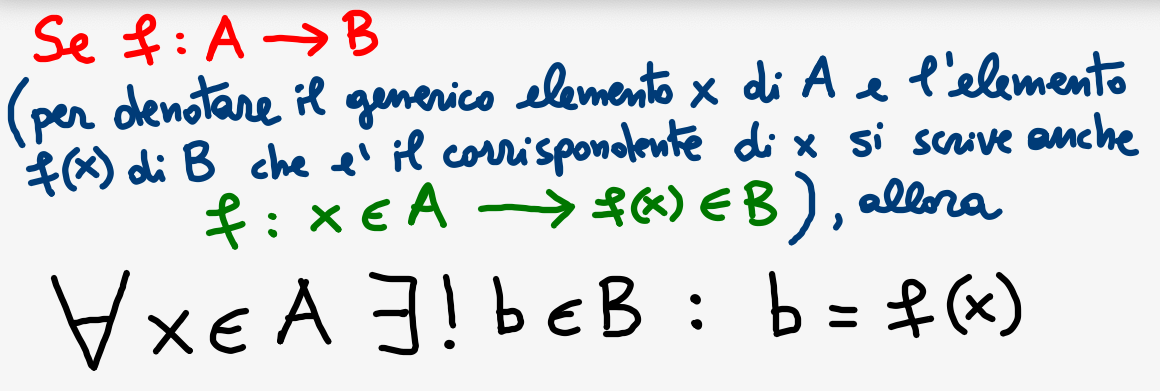 Se f : A → B
(per denotare il generico elemento x di A e l'elemento
f(x) di B che e' il corrispondente di x si scrive anche
f : x ∈ A → f(x) ∈ B), allora
∀ x ∈ A ∃! b ∈ B : b = f(x)